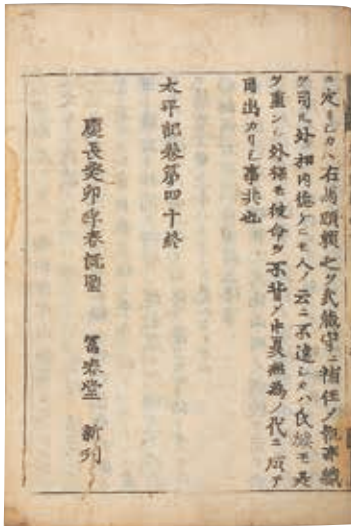 ニ定リシカハ右馬頭頼之ヲ武蔵守ニ補任シ執事職
ヲ司ル外相内徳ケニモ人ノ云ニ不違シカハ氏族モ是
ヲ重ンシ外様モ彼命ヲ不背シテ中夏無為ノ代ニ成テ
目出カリシ事共也
太平記巻第四十終
慶長癸卯季春既望 冨春堂 新刊